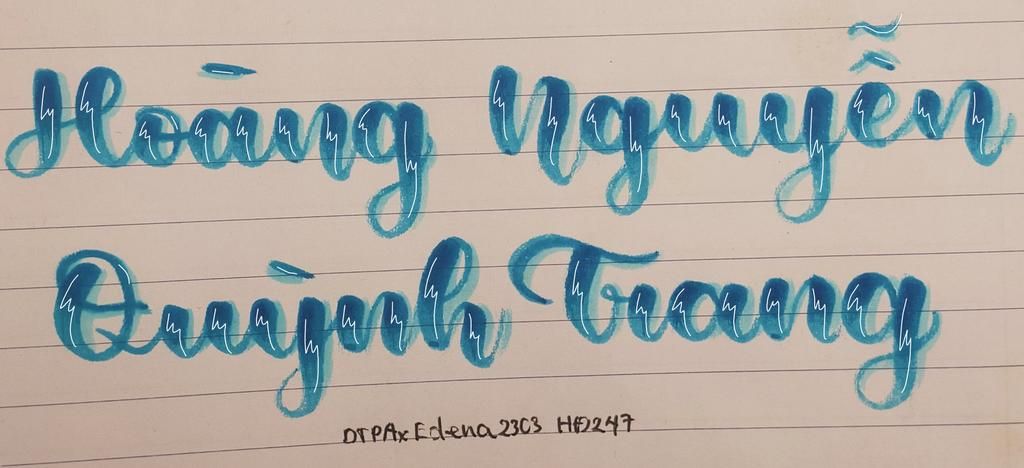 Hoàng Nguyễn
Quỳnh Trang
DTPAx Edena2303 HD247